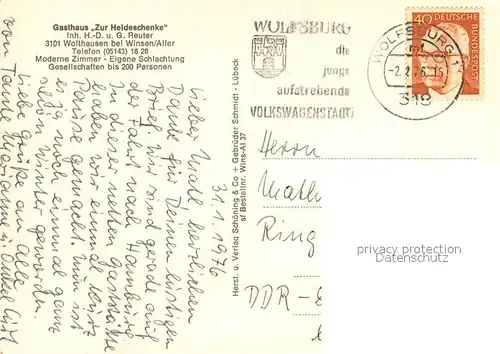 Gasthaus „Zur Heideschenke"
Inh. H.-D. u. G. Reuter
3101 Wolthausen bei Winsen/Aller
Telefon (05143) 18 28
Moderne Zimmer - Eigene Schlachtung
Gesellschaften bis 200 Personen
31.1.1976
Lieber Matl. herzlichen
Dank für Deinen lustigen
Brief. Wir sind gerade auf
der Fahrt nach Hamburg
In dieser netten Gaststätte
haben wir einmal kurz
Pause gemacht. Nun ist
es ja noch einmal ganz
schön Winter geworden.
Liebe Grüße an alle
von Tante Marianne u. Onkel
Herst. u. Verlag Schöning & Co + Gebrüder Schmidt - Lübeck
sf Bestellnr. Wins-Al 37
WOLFSBURG
die
junge
aufstrebende
VOLKSWAGENSTADT
WOLFSBURG 1
-2.2.76-15
318
40 DEUTSCHE
BUNDESPOST
Herrn
Math
Ring
DDR-
privacy protection
Datenschutz